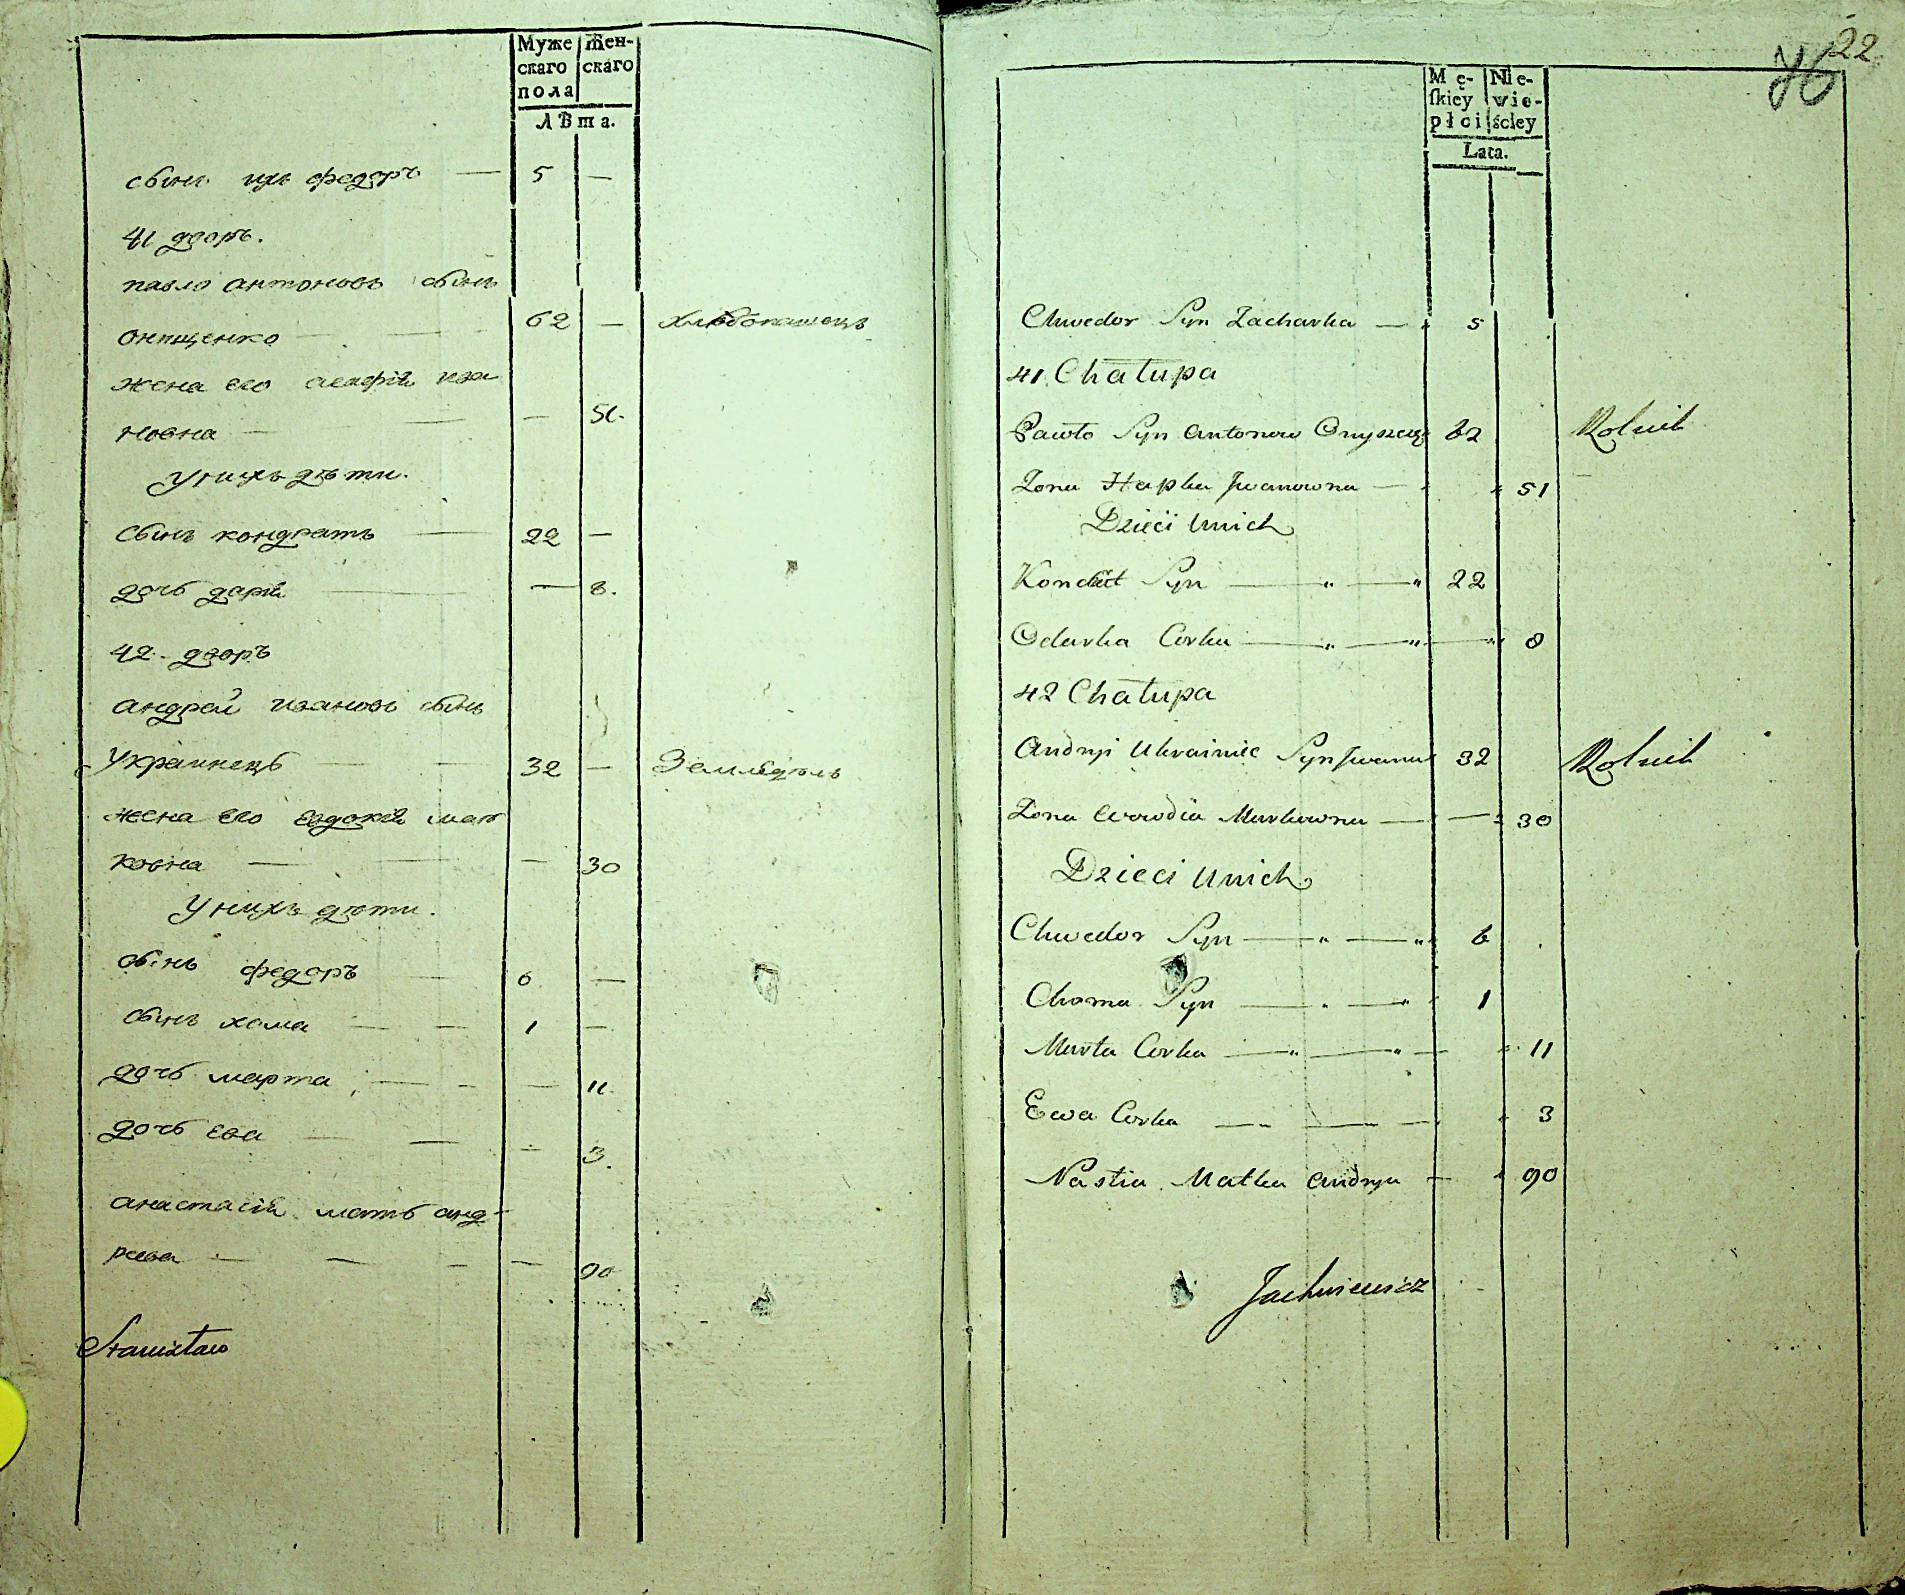 Муже
скаго
пола
Жен-
скаго
Лѣта.
сынъ ихъ федоръ — 5 —
41 дворъ.
павло антоновъ сынъ
онищенко — 62 — Хлѣбопашецъ
жена его агафія ива
новна — — 51.
У нихъ дѣти.
Сынъ кондратъ — 22 —
дочь дарія — — 8.
42. дворъ
андрей ивановъ сынъ
Украинецъ — 32 — Земледѣлъ
жена его евдокія мар
ковна — — 30
У нихъ дѣти.
сынъ федоръ — 6 —
сынъ хома — 1 —
дочь марта — — 11.
дочь ева — — 3.
анастасія мать анд-
реева — — 90
Stanisław
22
76
Mę-
skiey
płci
Nie-
wie-
ściey
Lata.
Chwedor Syn Zacharka — 5
41 Chałupa
Pawło Syn Antonow 62 Rolnik
Zona Hapka Jwanowna — 51
Dzieci Unich
Kondrat Syn — " — " 22
Odarka Corka — " — " — " 8
42 Chałupa
Andryi Ukrainiec Syn Jwanow 32 Rolnik
Zona Markowna — — 30
Dzieci Unich
Chwedor Syn — " — " 6
Choma Syn — " — " 1
Marta Corka — " — " — " 11
Ewa Corka — " — " — " 3
Nastia Matka Andryia — " 90
Jachniewicz